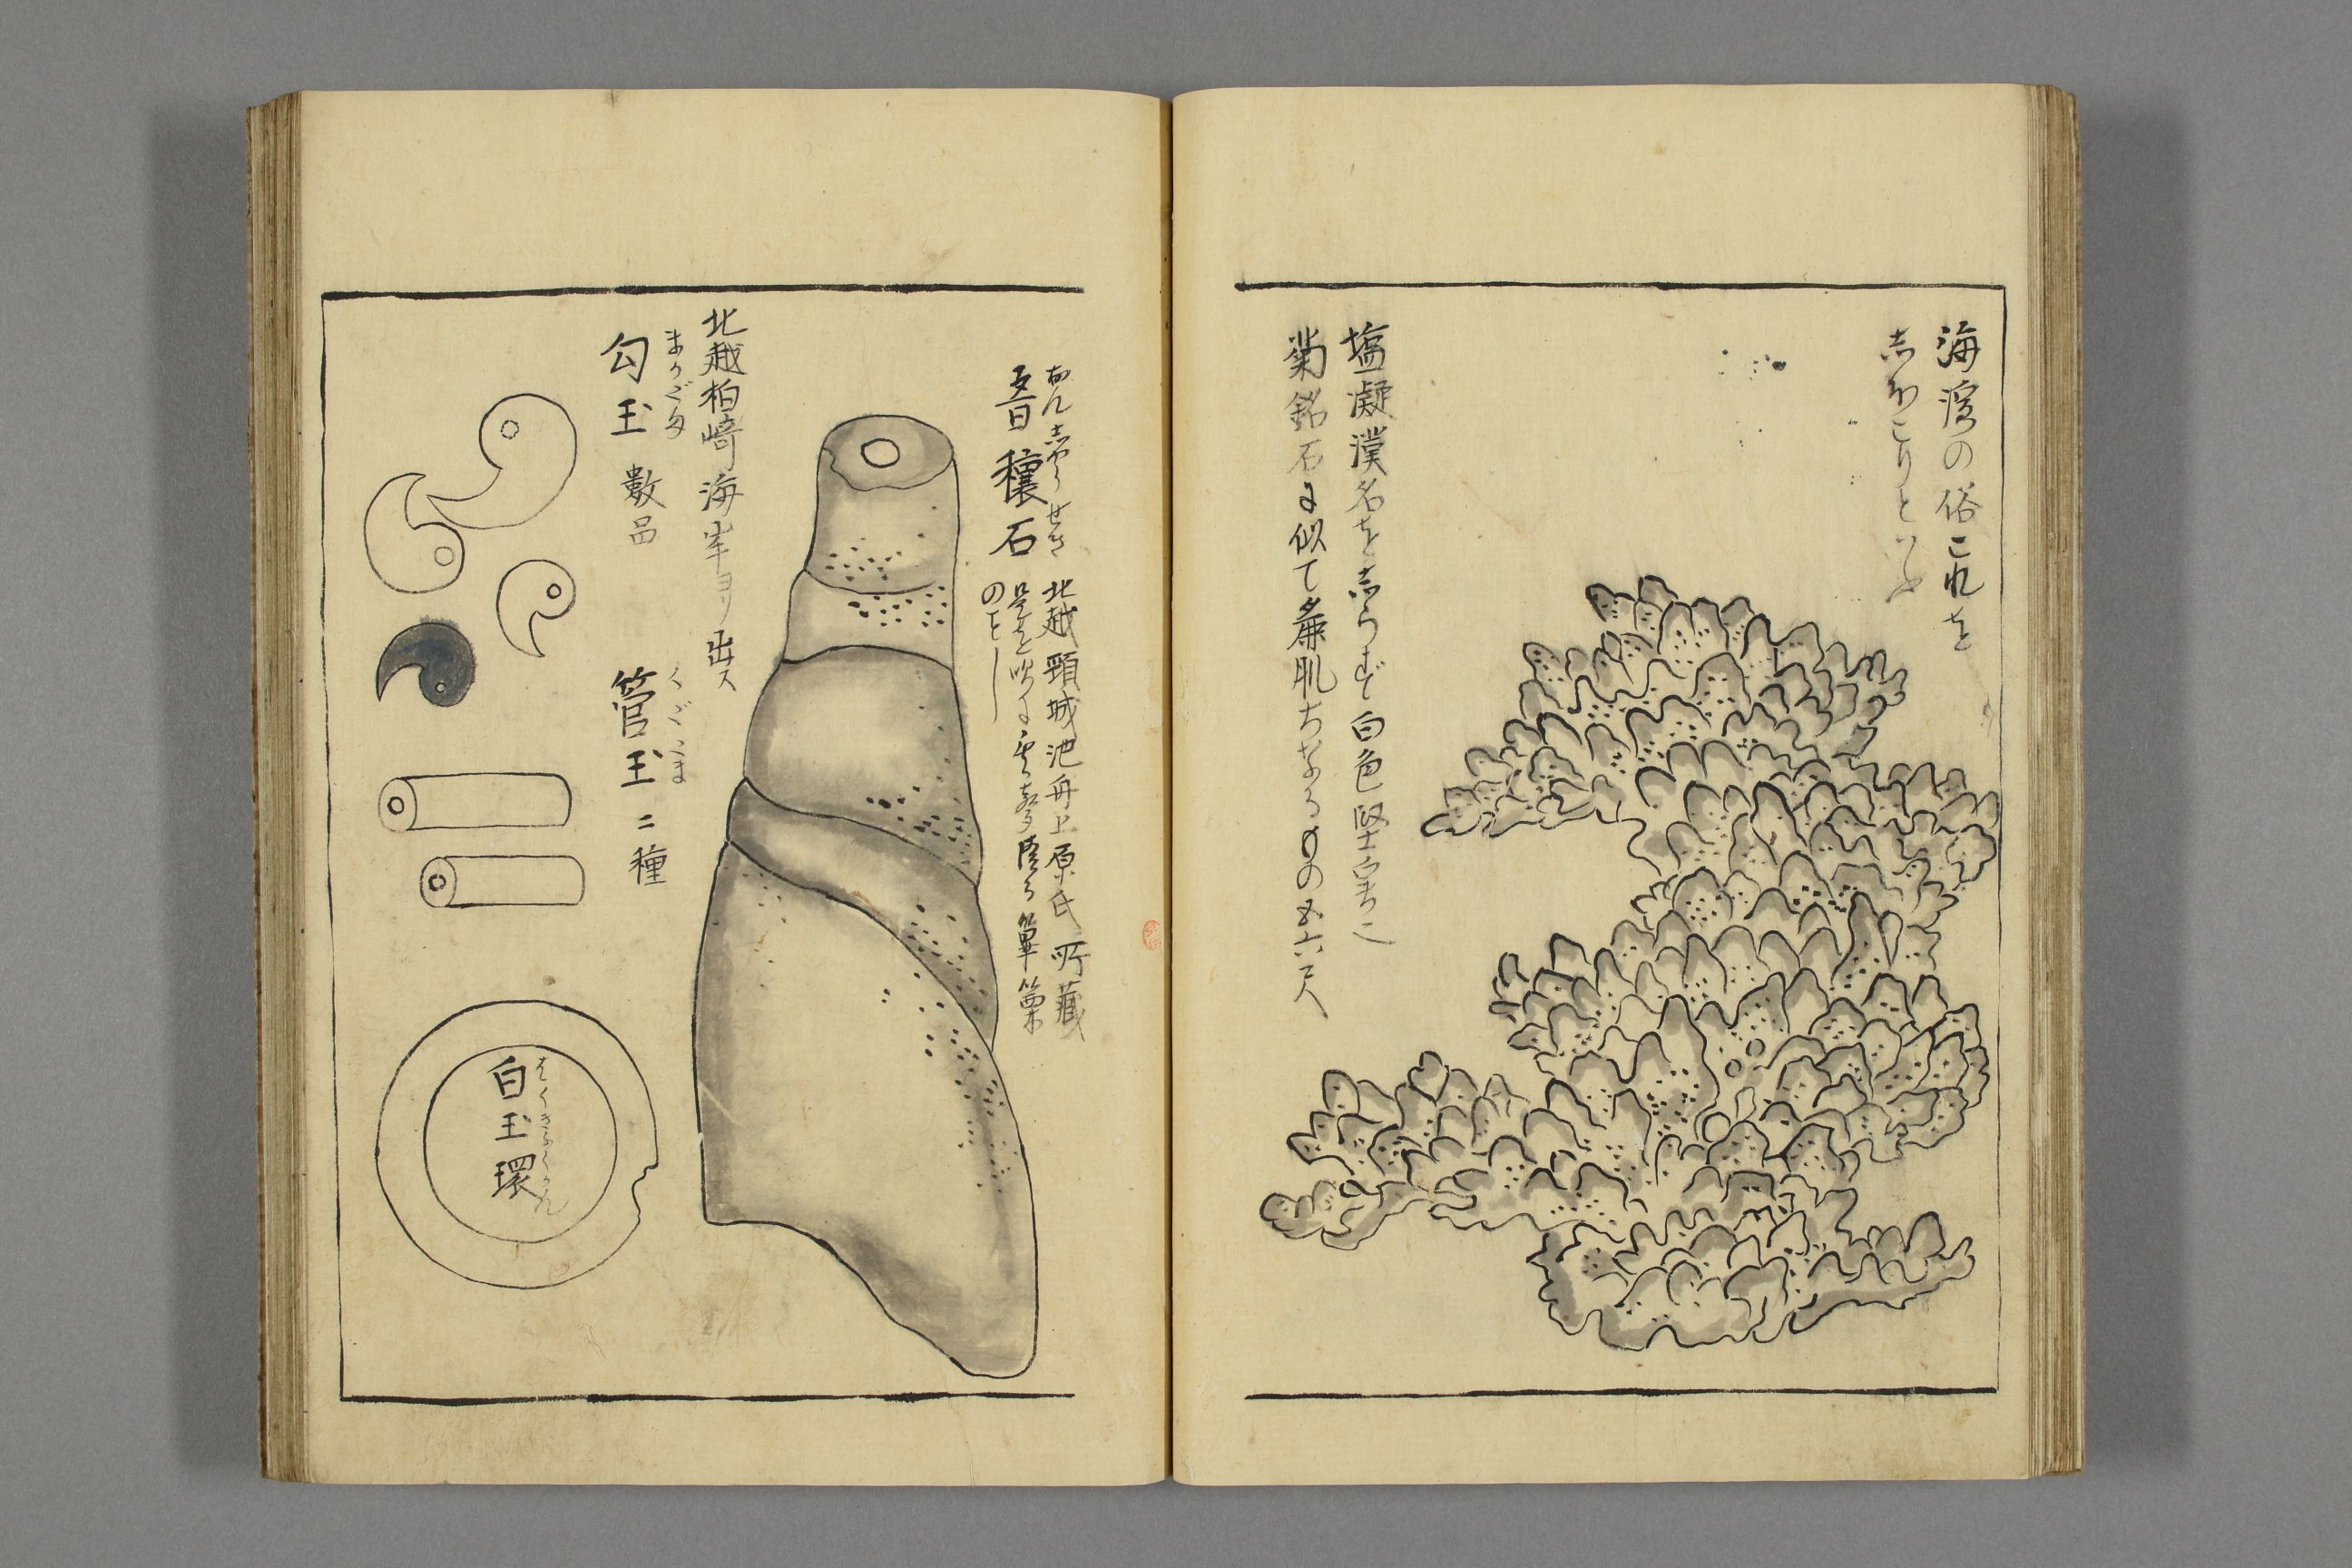 海濱の俗これを
志ほこりといふ
塩凝漢名を志らず白色堅実
菊銘石に似て麁肌ちなるもの五六尺
おんじやうせき
音穰石
北越頸城池舟上原氏所藏
是を吹に
のごとし
北越柏崎海岸ヨリ出ス
まがたま
勾玉 數品
くだたま
管玉 二種
はくぎょくくハん
白玉環